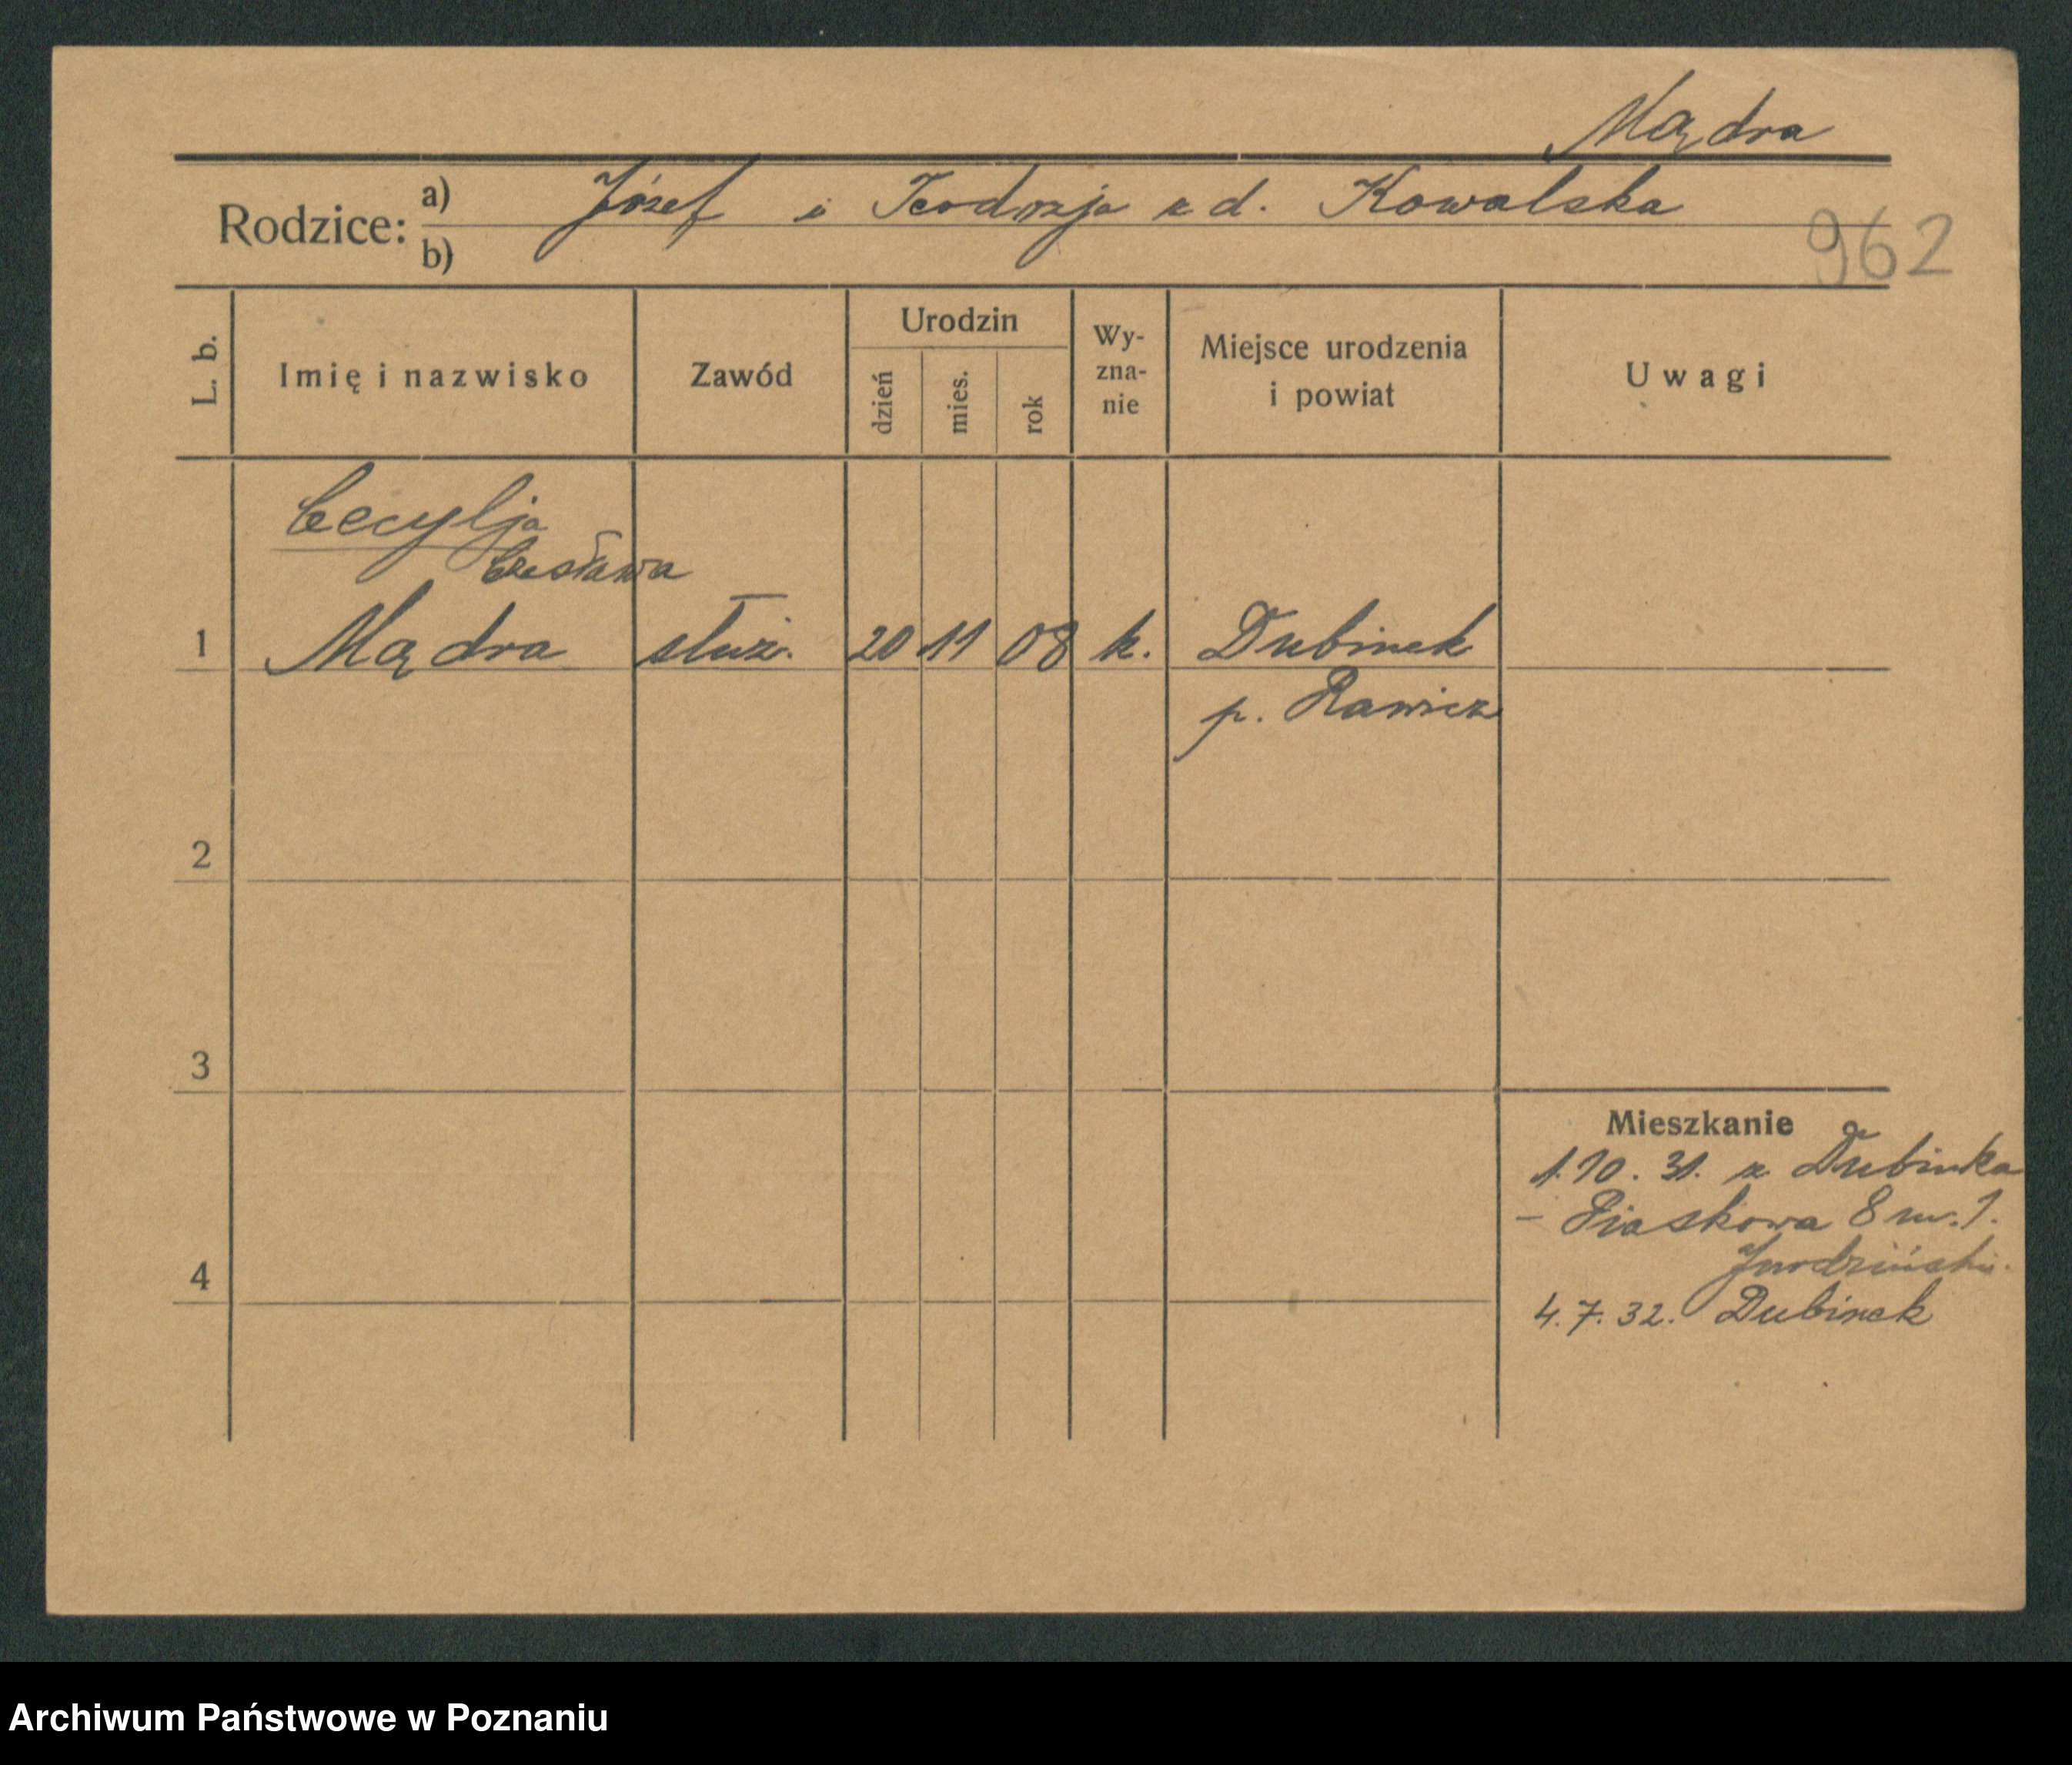 Mądra
Rodzice: a) Józef i Teodozja z d. Kowalska
b)
962
L. b.
Imię i nazwisko
Zawód
Urodzin
dzień
mies.
rok
Wy-
zna-
nie
Miejsce urodzenia
i powiat
Uwagi
Cecylja
Czesława
1 Mądra służ. 20 11 08 k. Dubinek
p. Rawicz
2
3
4
Mieszkanie
1.10.31. z Dubinka
- Piaskowa 8 m. 1.
4.7.32. Dubinek
Archiwum Państwowe w Poznaniu